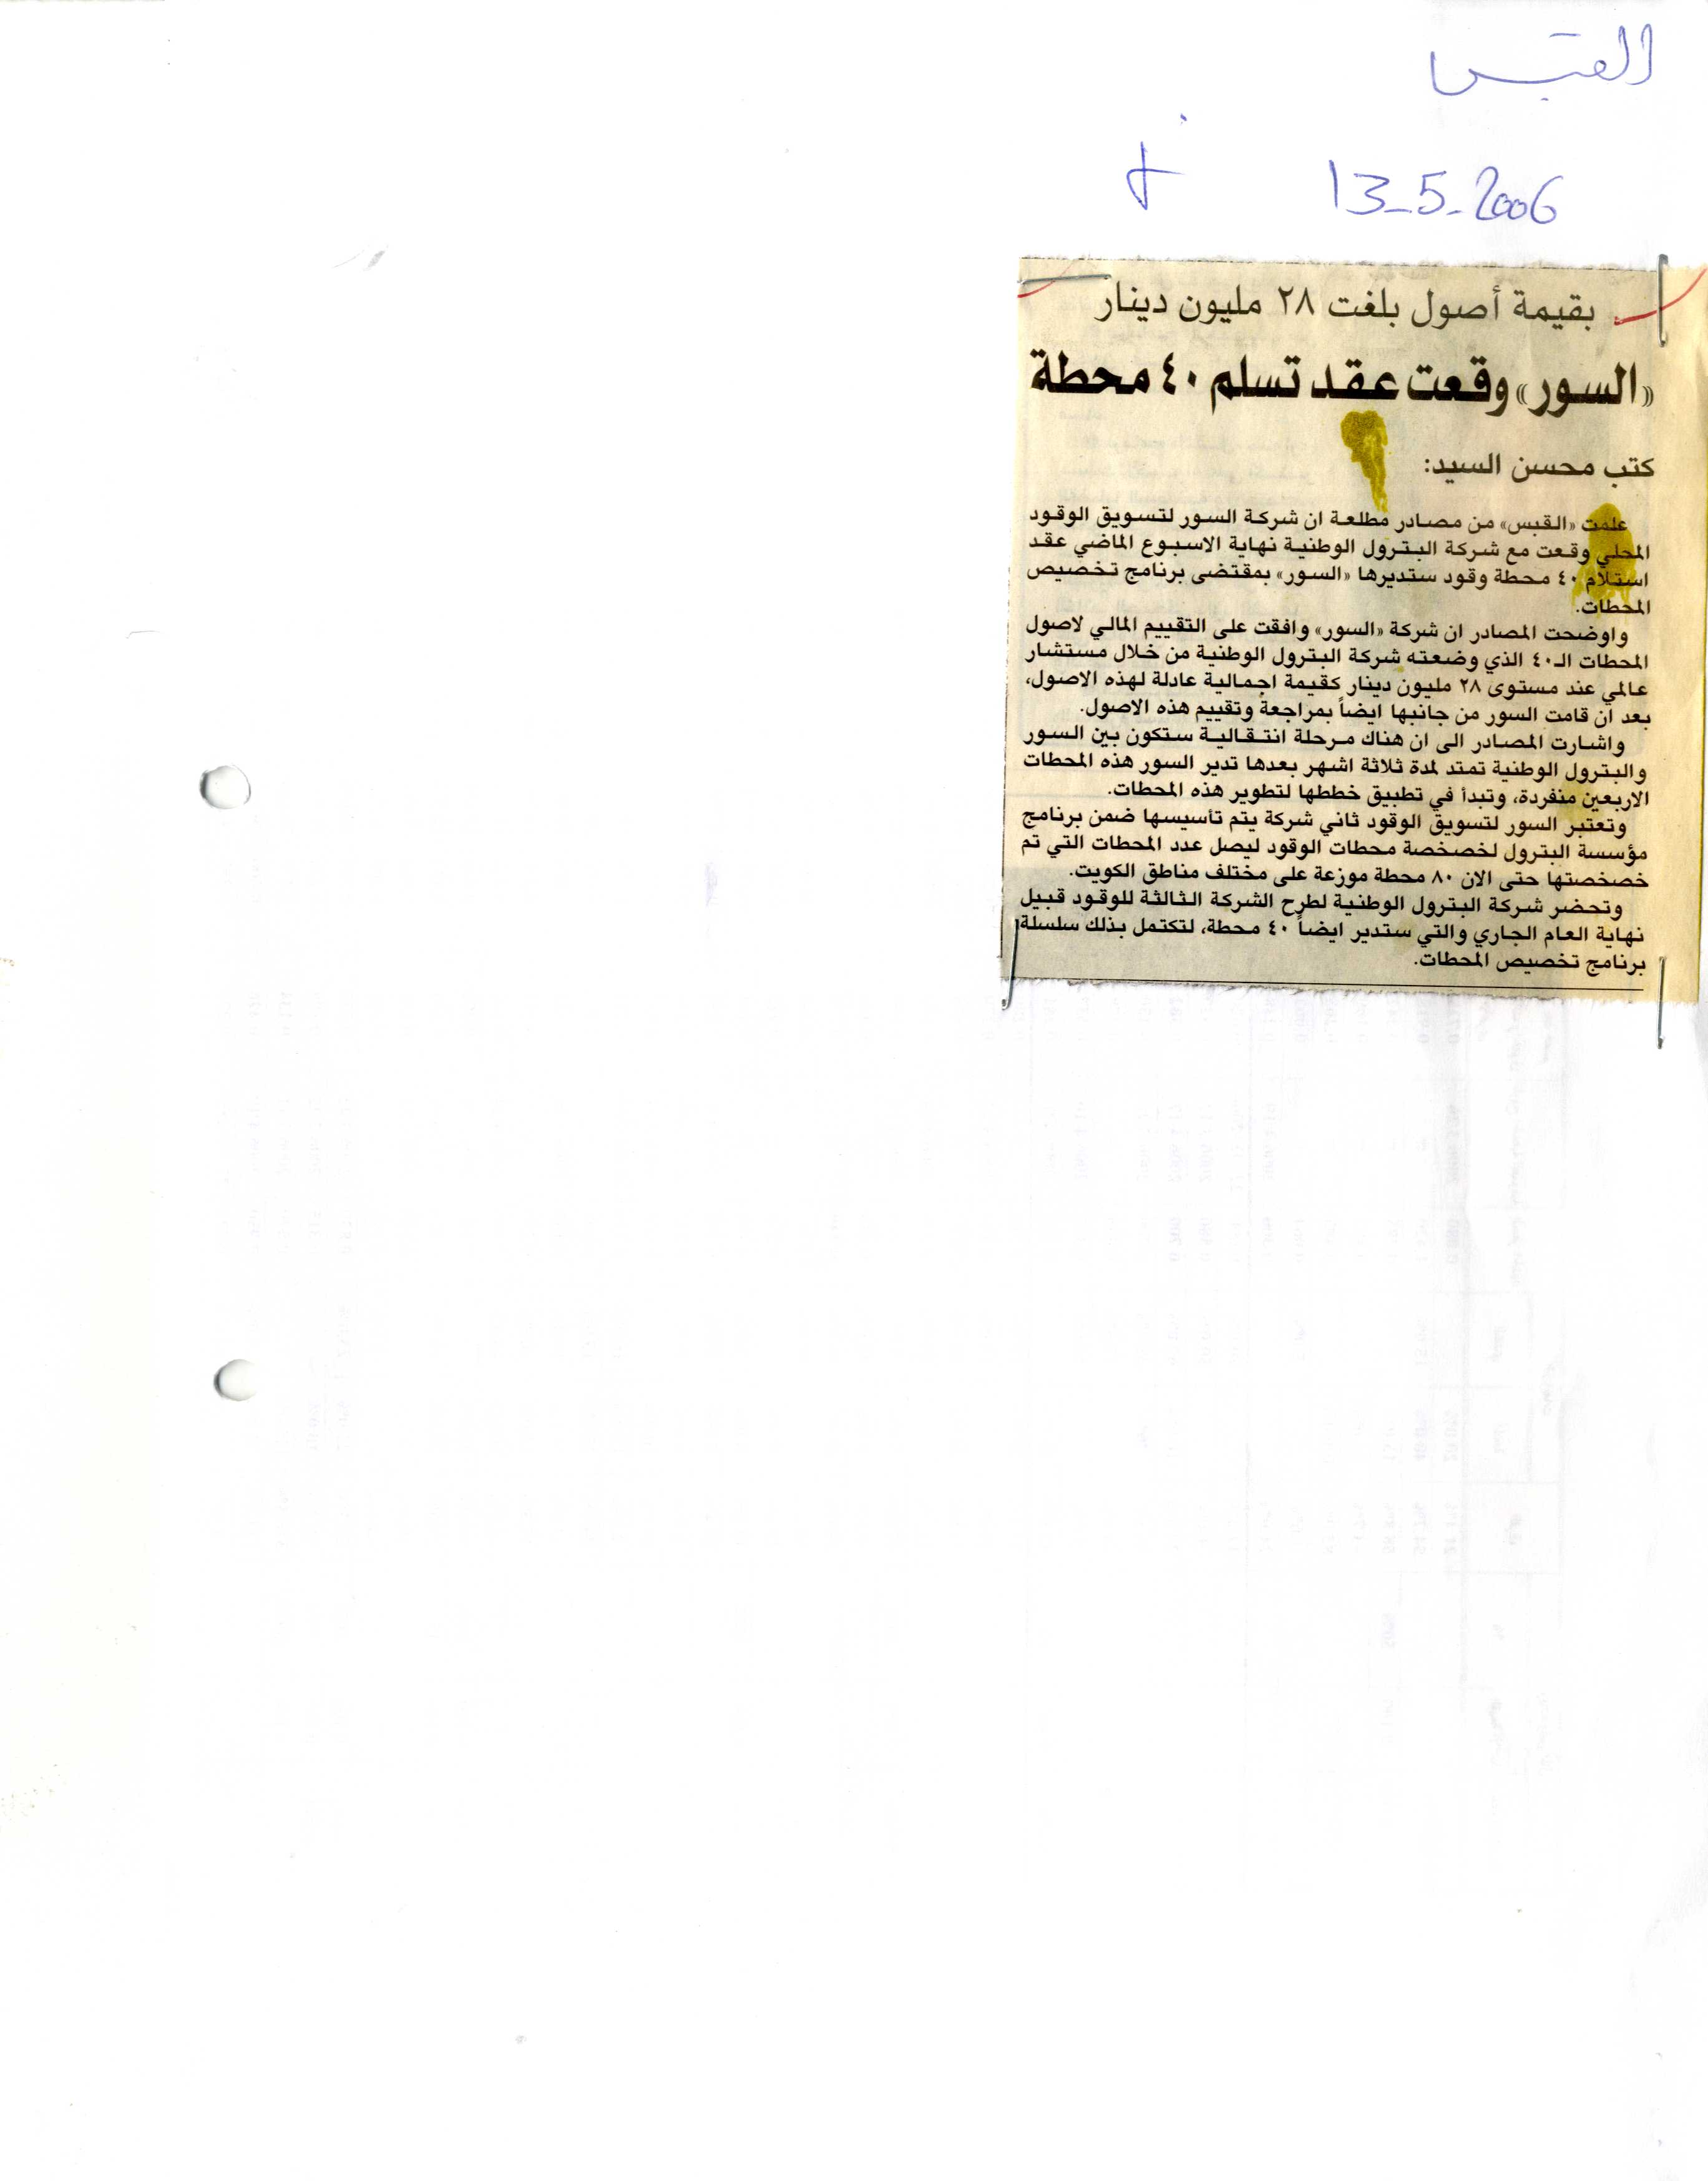 القبس
13-5-2006
بقيمة أصول بلغت ٢٨ مليون دينار
«السور» وقعت عقد تسلم ٤٠ محطة
كتب محسن السيد:
علمت «القبس» من مصادر مطلعة ان شركة السور لتسويق الوقود
المحلي وقعت مع شركة البترول الوطنية نهاية الاسبوع الماضي عقد
استلام ٤٠ محطة وقود ستديرها «السور» بمقتضى برنامج تخصيص
المحطات.
واوضحت المصادر ان شركة «السور» وافقت على التقييم المالي لاصول
المحطات الـ٤٠ الذي وضعته شركة البترول الوطنية من خلال مستشار
عالمي عند مستوى ٢٨ مليون دينار كقيمة اجمالية عادلة لهذه الاصول،
بعد ان قامت السور من جانبها ايضاً بمراجعة وتقييم هذه الاصول.
واشارت المصادر الى ان هناك مرحلة انتقالية ستكون بين السور
والبترول الوطنية تمتد لمدة ثلاثة اشهر بعدها تدير السور هذه المحطات
الاربعين منفردة، وتبدأ في تطبيق خططها لتطوير هذه المحطات.
وتعتبر السور لتسويق الوقود ثاني شركة يتم تأسيسها ضمن برنامج
مؤسسة البترول لخصخصة محطات الوقود ليصل عدد المحطات التي تم
خصخصتها حتى الان ٨٠ محطة موزعة على مختلف مناطق الكويت.
وتحضر شركة البترول الوطنية لطرح الشركة الثالثة للوقود قبيل
نهاية العام الجاري والتي ستدير ايضاً ٤٠ محطة، لتكتمل بذلك سلسلة
برنامج تخصيص المحطات.